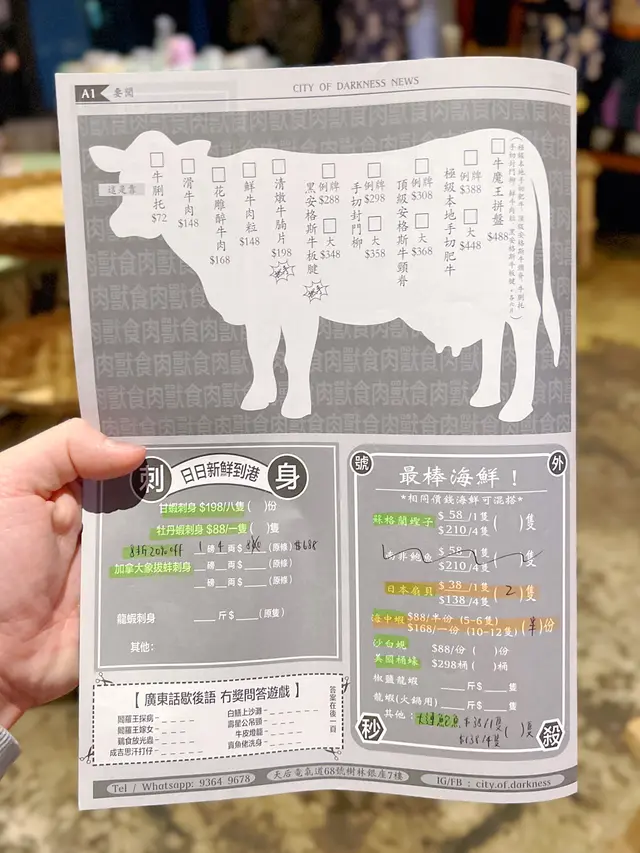 A1 要聞
CITY OF DARKNESS NEWS
牛脷托 $72
滑牛肉 $148
花雕醉牛肉 $168
鮮牛肉粒 $148
清燉牛腩片 $198
黑安格斯牛板腱 例牌 $288 大 $348
手切封門柳 例牌 $298 大 $358
頂級安格斯牛頸脊 例牌 $308 大 $368
極級本地手切肥牛 例牌 $388 大 $448
牛魔王拼盤 $488
刺 日日新鮮到港 身
甘蝦刺身 $198/八隻 ( )份
牡丹蝦刺身 $88/一隻 ( )隻
8折 20% off 1 磅 4 兩 $ (原條) $688
加拿大象拔蚌刺身 __磅__兩 $__(原條)
__磅__兩 $__(原條)
龍蝦刺身 ___斤 $___(原條)
其他:
號 外
最棒海鮮!
*相同價錢海鮮可混搭*
蘇格蘭蟶子 $ 58 /1隻 ( )隻
$210/4隻
南非鮑魚 $ 58 /1隻
$210/4隻
日本扇貝 $ 38 /1隻 ( 2 )隻
$138/4隻
海中蝦 $88/半份 (5-6隻) (半)份
$168/一份 (10-12隻)
沙白蜆 $88/份 ( )份
美國桶蠔 $298桶 ( )桶
椒鹽龍蝦 ___斤 $___隻
龍蝦(火鍋用) ___斤 $___隻
其他: $38/1隻 ( )隻
$138/4隻
秒 殺
【 廣東話歇後語 冇獎問答遊戲 】
答案在後一頁
閻羅王探病----
閻羅王嫁女----
鵝食放光蟲----
成吉思汗打仔----
白鱔上沙灘----
壽星公吊頸----
牛皮燈籠----
賣魚佬洗身----
Tel / Whatsapp: 9364 9678
天后電氣道68號樹林銀座7樓
IG/FB : city.of.darkness